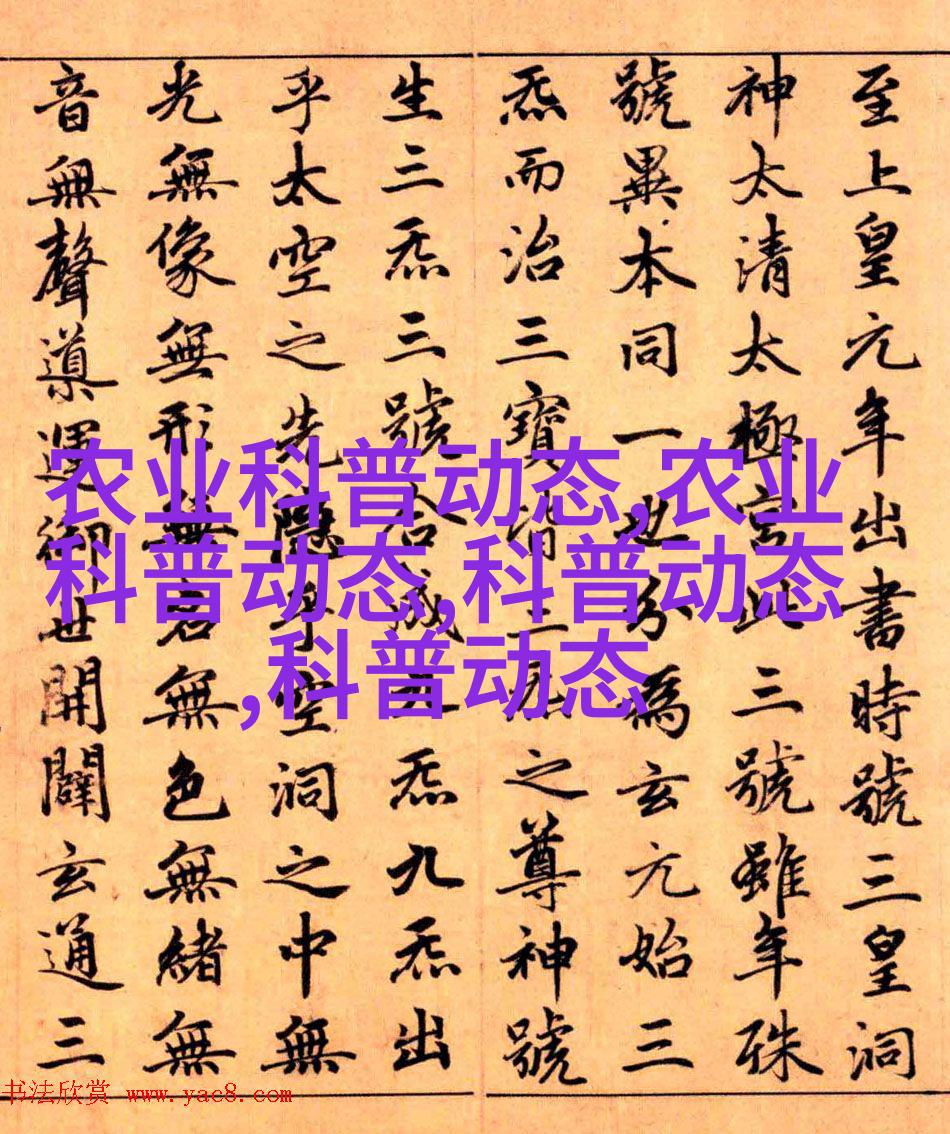 至上皇元年出書時號三皇洞
神太清太極宮此三號雖年殊
號異本同一也分為玄元始三
炁而治三寶皆三炁之尊神號
生三炁三號合成九炁九炁出
乎太空之先隱乎空洞之中無
光無像無形無名無色無緒無
音無聲導運御世開闢玄通三
农业科普动态,农业
科普动态,科普动态
,科普动态
书法欣赏 www.yac8.com